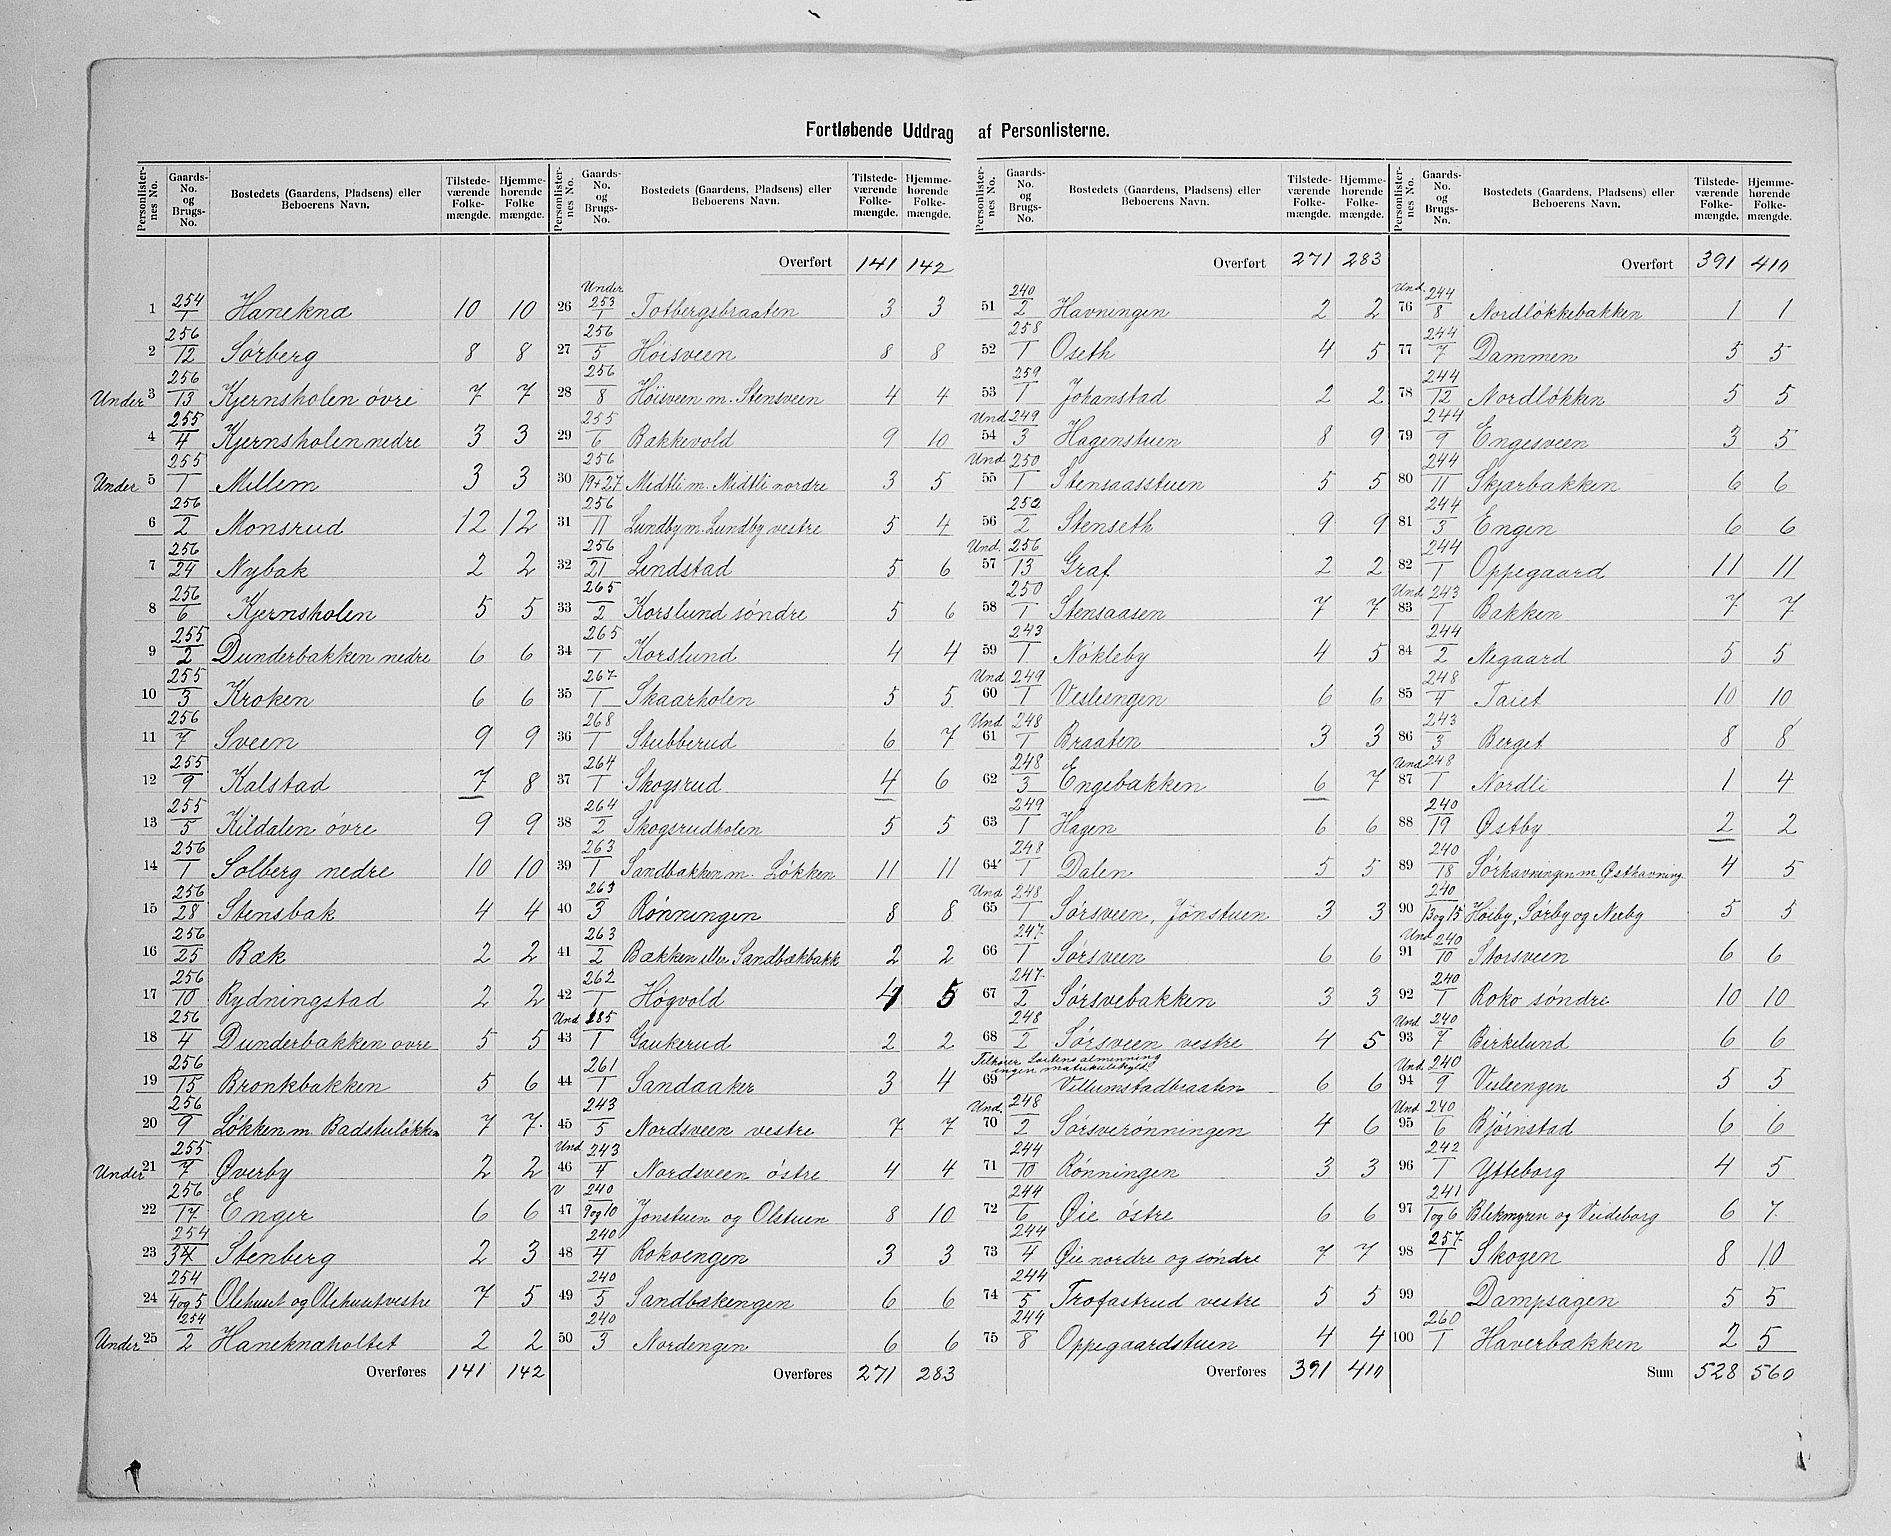 Fortløbende Uddrag af Personlisterne.
Personlister-nes No. | Gaards-No. og Brugs-No. | Bostedets (Gaardens, Pladsens) eller Beboerens Navn. | Tilstede-værende Folke-mængde. | Hjemme-hørende Folke mængde.
1 254/1 Haneknæ 10 10
2 256/12 Sørberg 8 8
Under 3 256/13 Kjernsholen øvre 7 7
4 255/4 Kjernsholen nedre 3 3
Under 5 255/1 Mellem 3 3
6 256/2 Monsrud 12 12
7 256/24 Nybak 2 2
8 256/6 Kjernsholen 5 5
9 255/2 Dunderbakken nedre 6 6
10 255/3 Kroken 6 6
11 256/7 Sveen 9 9
12 255/9 Kalstad 7 8
13 255/5 Kildalen øvre 9 9
14 256/1 Solberg nedre 10 10
15 256/28 Stensbak 4 4
16 256/25 Bæk 2 2
17 256/10 Rydningstad 2 2
18 256/4 Dunderbakken øvre 5 5
19 256/15 Bronkbakken 5 6
20 256/9 Løkken m. Badstuløkken 7 7
Under 21 255/7 Øverby 2 2
22 256/17 Enger 6 6
23 254/3 Stenberg 2 3
24 254/4 og 5 Olehuset og Olehuset vestre 7 5
Under 25 254/2 Haneknæholtet 2 2
Overføres 141 142
Personlister-nes No. | Gaards-No. og Brugs-No. | Bostedets (Gaardens, Pladsens) eller Beboerens Navn. | Tilstede-værende Folke-mængde. | Hjemme-hørende Folke-mængde.
Overført 141 142
26 Under 253/1 Totbergsbraaten 3 3
27 256/5 Høisveen 8 8
28 256/8 Høisveen m. Stensveen 4 4
29 255/6 Bakkevold 9 10
30 256/19+27 Midtli m. Midtli nordre 3 5
31 256/11 Lundby m. Lundby vestre 5 4
32 256/21 Lindstad 5 6
33 265/2 Korslund søndre 5 6
34 265/1 Korslund 4 4
35 267/1 Skaarholen 5 5
36 268/1 Stubberud 6 7
37 264/1 Skogsrud 4 6
38 264/2 Skogsrudholen 5 5
39 263/1 Sandbakken m. Løkken 11 11
40 263/3 Rønningen 8 8
41 263/2 Bakken eller Sandbækbakk 2 2
42 262/1 Høgvold 4 5
43 Und 185/1 Gaukerud 2 2
44 261/1 Sandaaker 3 4
45 243/5 Nordsveen vestre 7 7
46 Und. 243/4 Nordsveen østre 4 4
47 240/9 og 10 Jonstuen og Olstuen 8 10
48 240/4 Rokoengen 3 3
49 240/5 Sandbækengen 6 6
50 240/3 Nordengen 6 6
Overføres 271 283
Personlister-nes No. | Gaards-No. og Brugs-No. | Bostedets (Gaardens, Pladsens) eller Beboerens Navn. | Tilstede-værende Folke-mængde. | Hjemme-hørende Folke-mængde.
Overført 271 283
51 240/2 Havningen 2 2
52 258/1 Oseth 4 5
53 259/1 Johanstad 2 2
Und 54 249/3 Hagenstuen 8 9
Und 55 250/1 Stensaasstuen 5 5
56 250/2 Stenseth 9 9
Und. 57 256/13 Graf 2 2
58 250/1 Stensaasen 7 7
59 243/1 Nøkleby 4 5
Und 60 249/1 Vesleengen 6 6
Und 61 248/1 Braaten 3 3
62 248/3 Engebakken 6 7
63 249/1 Hagen 6 6
64 248/1 Dalen 5 5
Und 65 248/1 Sørsveen, Jønstuen 3 3
66 247/1 Sørsveen 6 6
67 247/2 Sørsvebakken 3 3
68 248/2 Sørsveen vestre 4 5
Tilhører Løitens almenning ingen matrikulskyld
69 Villumstadbraaten 6 6
Und. 70 248/2 Sørsverønningen 4 6
71 244/10 Rønningen 3 3
72 244/6 Øie østre 6 6
73 244/4 Øie nordre og søndre 7 7
74 244/5 Trofastrud vestre 5 5
75 244/8 Oppegaardstuen 4 4
Overføres 391 410
Personlister-nes No. | Gaards-No. og Brugs-No. | Bostedets (Gaardens, Pladsens) eller Beboerens Navn. | Tilstede-værende Folke-mængde. | Hjemme-hørende Folke-mængde.
Overført 391 410
Und. 76 244/8 Nordløkkebakken 1 1
77 244/7 Dammen 5 5
78 244/12 Nordløkken 5 5
79 244/9 Engesveen 3 5
80 244/11 Skjærbakken 6 6
81 244/3 Engen 6 6
82 244/1 Oppegaard 11 11
Und 83 243/1 Bakken 7 7
84 244/2 Negaard 5 5
85 248/4 Taiet 10 10
86 243/3 Berget 8 8
Und 87 248/1 Nordli 1 4
88 240/19 Østby 2 2
89 240/18 Sørhavningen m. Østhavning 4 5
90 240/13 og 15 Høiby, Sørby og Nerby 5 5
Und 91 240/10 Storsveen 6 6
92 240/1 Roko søndre 10 10
Und 93 240/7 Birkelund 6 6
Und 94 240/9 Vesleengen 5 5
Und 95 240/6 Bjørnstad 6 6
96 242/1 Ytteborg 4 5
97 241/1 og 6 Blekmyren og Veideborg 6 7
98 257/1 Skogen 8 10
99 Dampsagen 5 5
100 260/1 Haverbakken 2 5
Sum 528 560